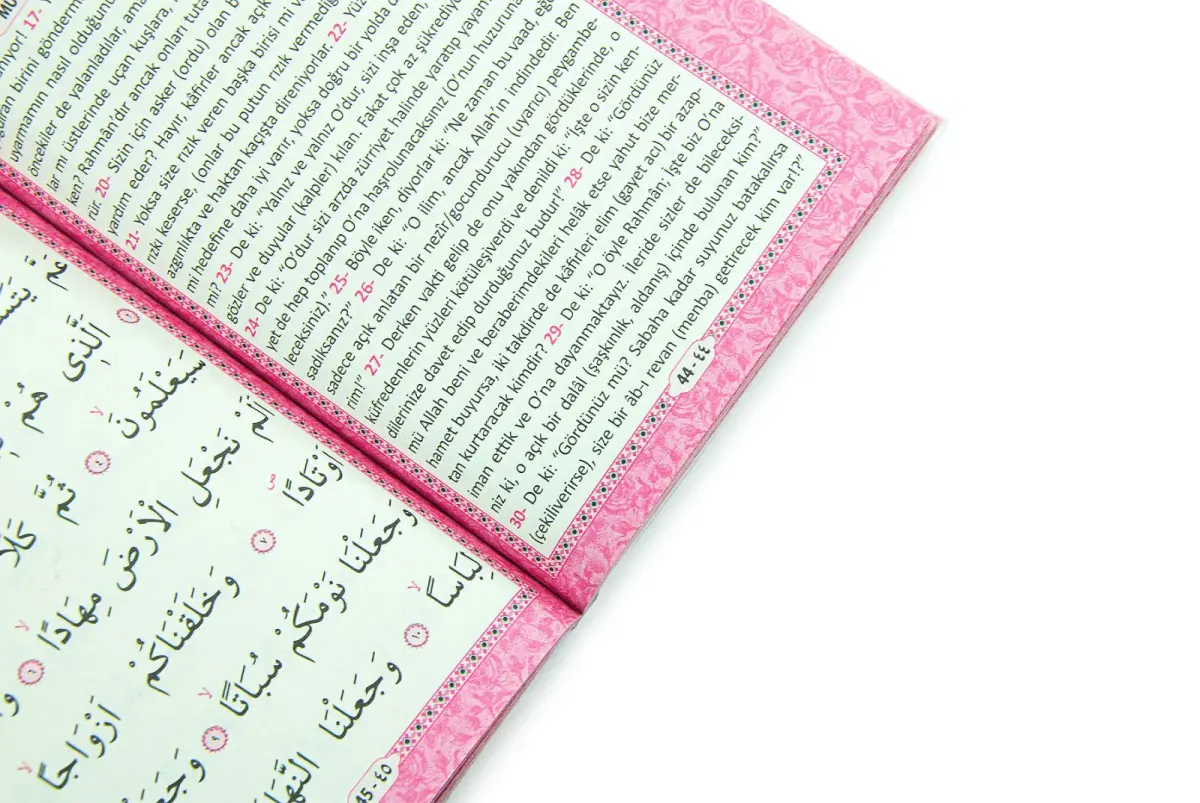 17-
birini
uyarmamın nasıl olduğunu
öncekiler de yalanladılar,
mi üstlerinde uçan kuşlara,
ken? Rahmân'dır ancak onları
rür. 20- Sizin için asker (ordu) olan
yardım eder? Hayır, kâfirler ancak
21- Yoksa size rızık veren başka birisi mi
rızkı keserse, (onlar bu putun rızık
azgınlıkta ve haktan kaçışta direniyorlar. 22-
mi hedefine daha iyi varır, yoksa doğru bir yolda
mi? 23- De ki: “Yalnız ve yalnız O'dur, sizi inşa eden,
gözler ve duyular (kalpler) kılan. Fakat çok az
24- De ki: “O'dur sizi arzda zürriyet halinde yaratıp yayan,
yet de hep toplanıp O'na haşrolunacaksınız (O'nun huzuruna
leceksiniz).” 25- Böyle iken, diyorlar ki: “Ne zaman bu vaad,
sadıksanız?” 26- De ki: “O ilim, ancak Allah'ın indindedir. Ben
sadece açık anlatan bir nezîr/gocundurucu (uyarıcı) peygambe-
rim!” 27- Derken vakti gelip de onu yakından gördüklerinde, o
küfredenlerin yüzleri kötüleşiverdi ve denildi ki: “İşte o sizin ken-
dilerinize davet edip durduğunuz budur!” 28- De ki: “Gördünüz
mü Allah beni ve beraberimdekileri helâk etse yahut bize mer-
hamet buyursa, iki takdirde de kâfirleri elîm (gayet acı) bir azap-
tan kurtaracak kimdir? 29- De ki: “O öyle Rahmân; İşte biz O'na
iman ettik ve O'na dayanmaktayız. İleride sizler de bileceksi-
niz ki, o açık bir dalâl (şaşkınlık, aldanış) içinde bulunan kim?”
30- De ki: “Gördünüz mü? Sabaha kadar suyunuz batakalırsa
(çekiliverirse), size bir âb-ı revan (menba) getirecek kim var!?”
44 - ٤٤
اَلَّذ۪ى هُمْ
سَيَعْلَمُونَ ٤ ثُمَّ كَلَّا
اَلَمْ نَجْعَلِ الْاَرْضَ مِهَادًا ٦
اَوْتَادًا ٧ وَخَلَقْنَاكُمْ اَزْوَاجًا
وَجَعَلْنَا نَوْمَكُمْ سُبَاتًا ٩
لِبَاسًا ١٠ وَجَعَلْنَا
45 - ٤٥